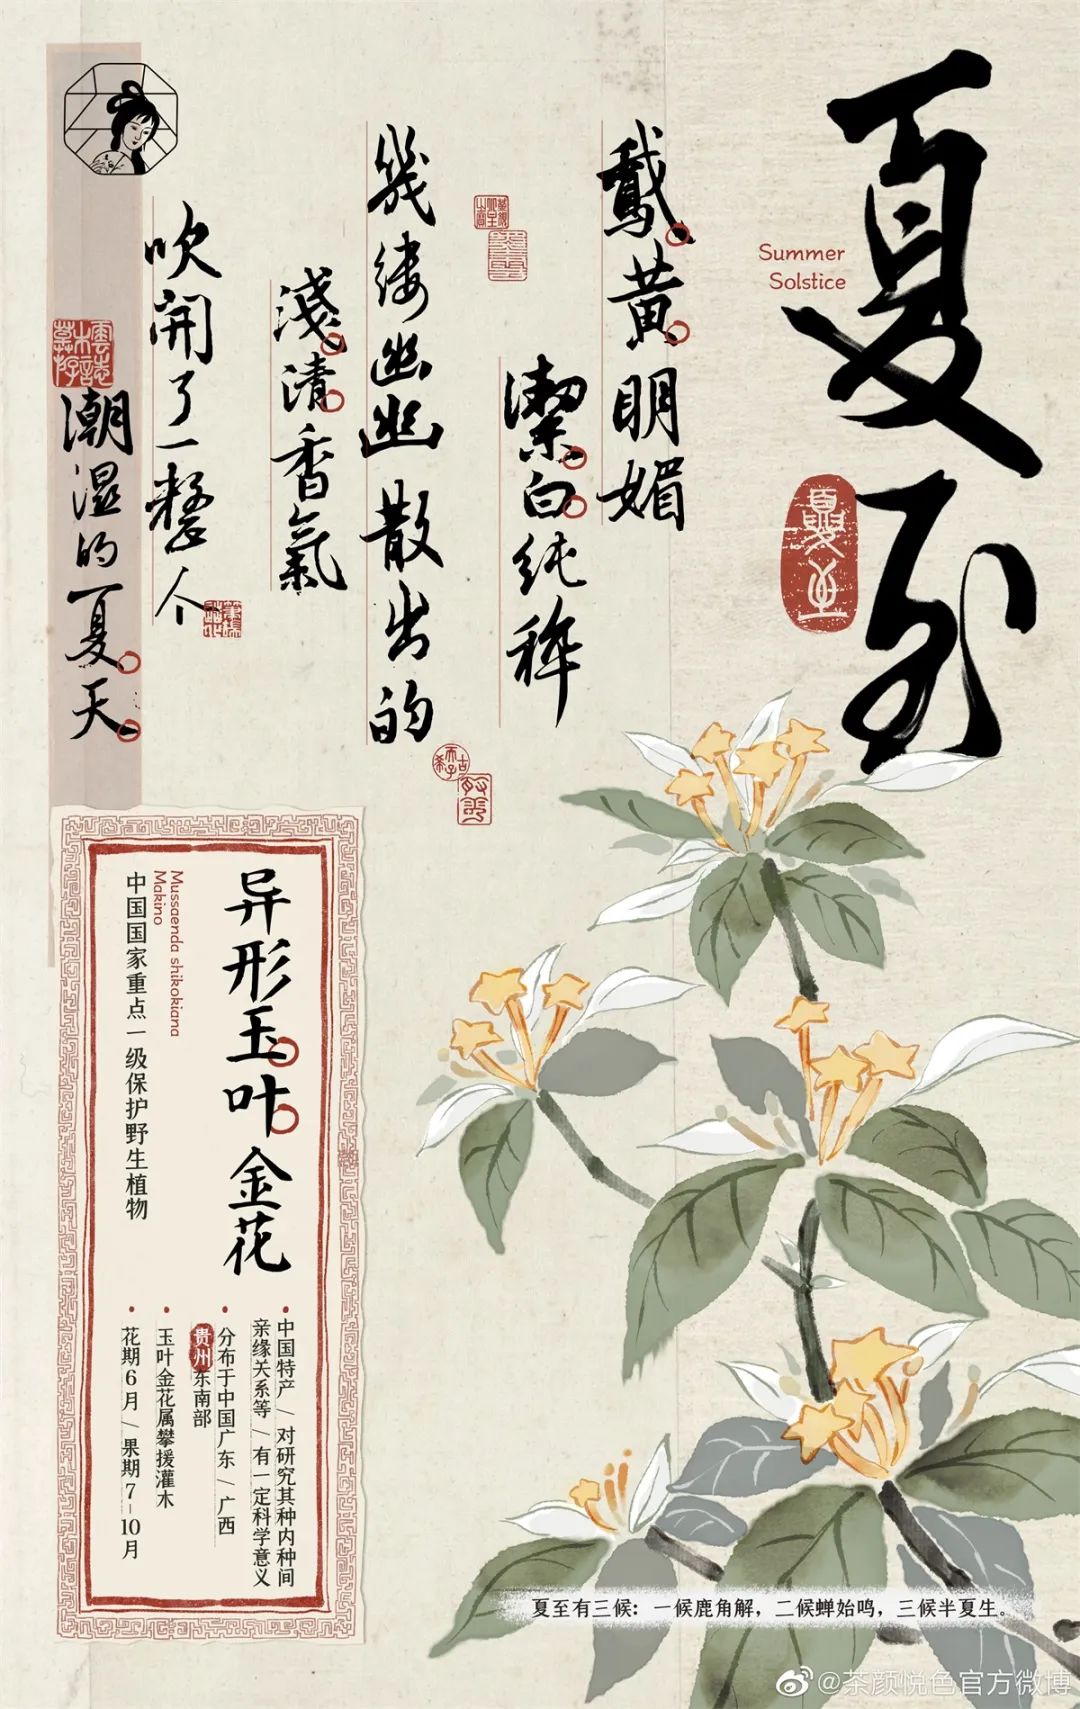 夏至
Summer
Solstice
夏至
鵞黃明媚
潔白纯稚
幾缕幽幽散出的
淺清香氣
吹開了一整个
潮湿的夏天
異形玉叶金花
Mussaenda shikokiana
Makino
中国国家重点一级保护野生植物
中国特产/对研究其种内种间
亲缘关系等/有一定科学意义
分布于中国广东/广西
贵州东南部
玉叶金花属攀援灌木
花期6月/果期7-10月
夏至有三候：一候鹿角解，二候蝉始鸣，三候半夏生。
@茶颜悦色官方微博